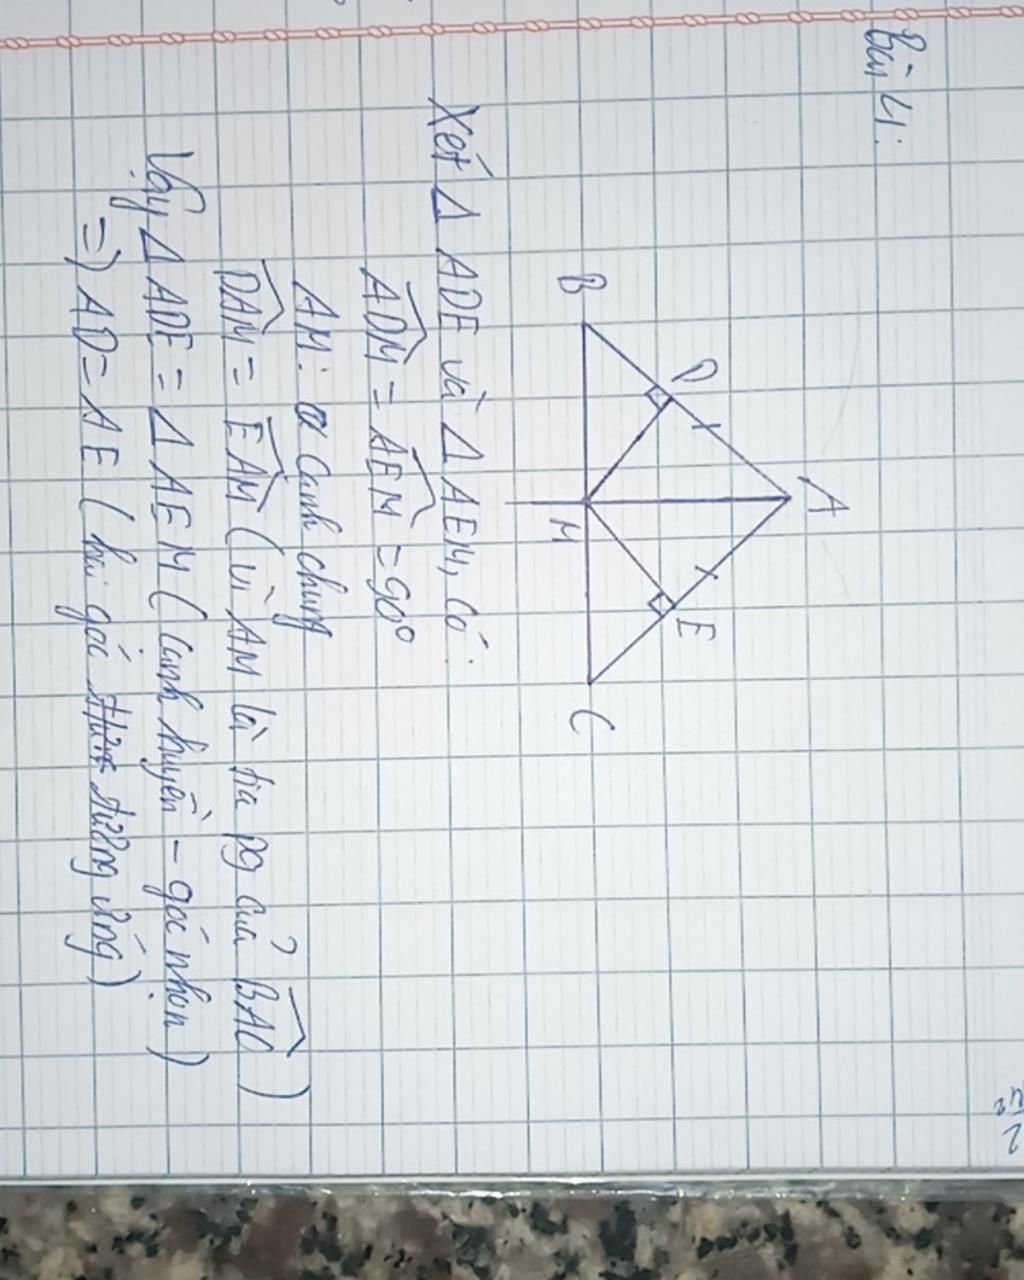 Bài 4:
A
D
E
B
M
C
Xét Δ ADE và Δ AEM, có:
ADM = AEM = 90°
AM: cạnh chung
DAM = EAM (vì AM là tia pg của BAC)
Vậy Δ ADE = Δ AEM (cạnh huyền - góc nhọn)
=) AD = AE (hai góc tương ứng)